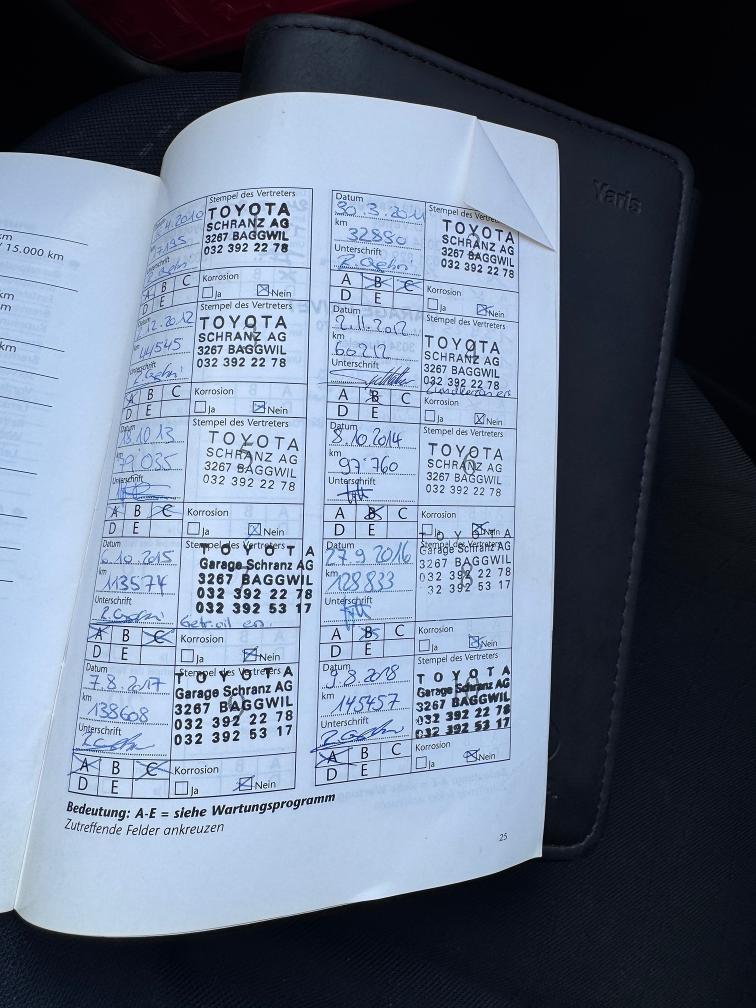 km
15.000 km
km
m
km
Yaris
Stempel des Vertreters
2010
TOYOTA
SCHRANZ AG
3267 BAGGWIL
032 392 22 78
km
7195
Unterschrift
A B C
D E
Korrosion
Ja Nein
Datum
30.3.2011
km
32850
Unterschrift
Stempel des Vertre
TOYOTA
SCHRANZ AG
3267 BAGGWIL
032 392 22 78
A B C
D E
Korrosion
Ja Nein
Stempel des Vertreters
2.2012
TOYOTA
SCHRANZ AG
3267 BAGGWIL
032 392 22 78
44545
Unterschrift
A B C
D E
Korrosion
Ja Nein
Datum
2.11.2012
km
60212
Unterschrift
Stempel des Vertreters
TOYOTA
SCHRANZ AG
3267 BAGGWIL
032 392 22 78
A B C
D E
Korrosion
Ja Nein
Datum
18.10.13
km
79'035
Unterschrift
Stempel des Vertreters
TOYOTA
SCHRANZ AG
3267 BAGGWIL
032 392 22 78
A B C
D E
Korrosion
Ja Nein
Datum
8.10.2014
km
97'760
Unterschrift
Stempel des Vertreters
TOYOTA
SCHRANZ AG
3267 BAGGWIL
032 392 22 78
A B C
D E
Korrosion
Ja Nein
Datum
10.2015
km
113574
Unterschrift
Stempel des Vertreters
TOYOTA
Garage Schranz AG
3267 BAGGWIL
032 392 22 78
032 392 53 17
A B C
D E
Korrosion
Ja Nein
Datum
27.9.2016
km
128833
Unterschrift
Stempel des Vertreters
TOYOTA
Garage Schranz AG
3267 BAGGWIL
032 392 22 78
32 392 53 17
A B C
D E
Korrosion
Ja Nein
Datum
7.8.2017
km
138608
Unterschrift
Stempel des Vertreters
TOYOTA
Garage Schranz AG
3267 BAGGWIL
032 392 22 78
032 392 53 17
A B C
D E
Korrosion
Ja Nein
Datum
9.8.2018
km
145457
Unterschrift
Stempel des Vertreters
TOYOTA
Garage Schranz AG
3267 BAGGWIL
032 392 22 78
032 392 53 17
A B C
D E
Korrosion
Ja Nein
Bedeutung: A-E = siehe Wartungsprogramm
Zutreffende Felder ankreuzen
25